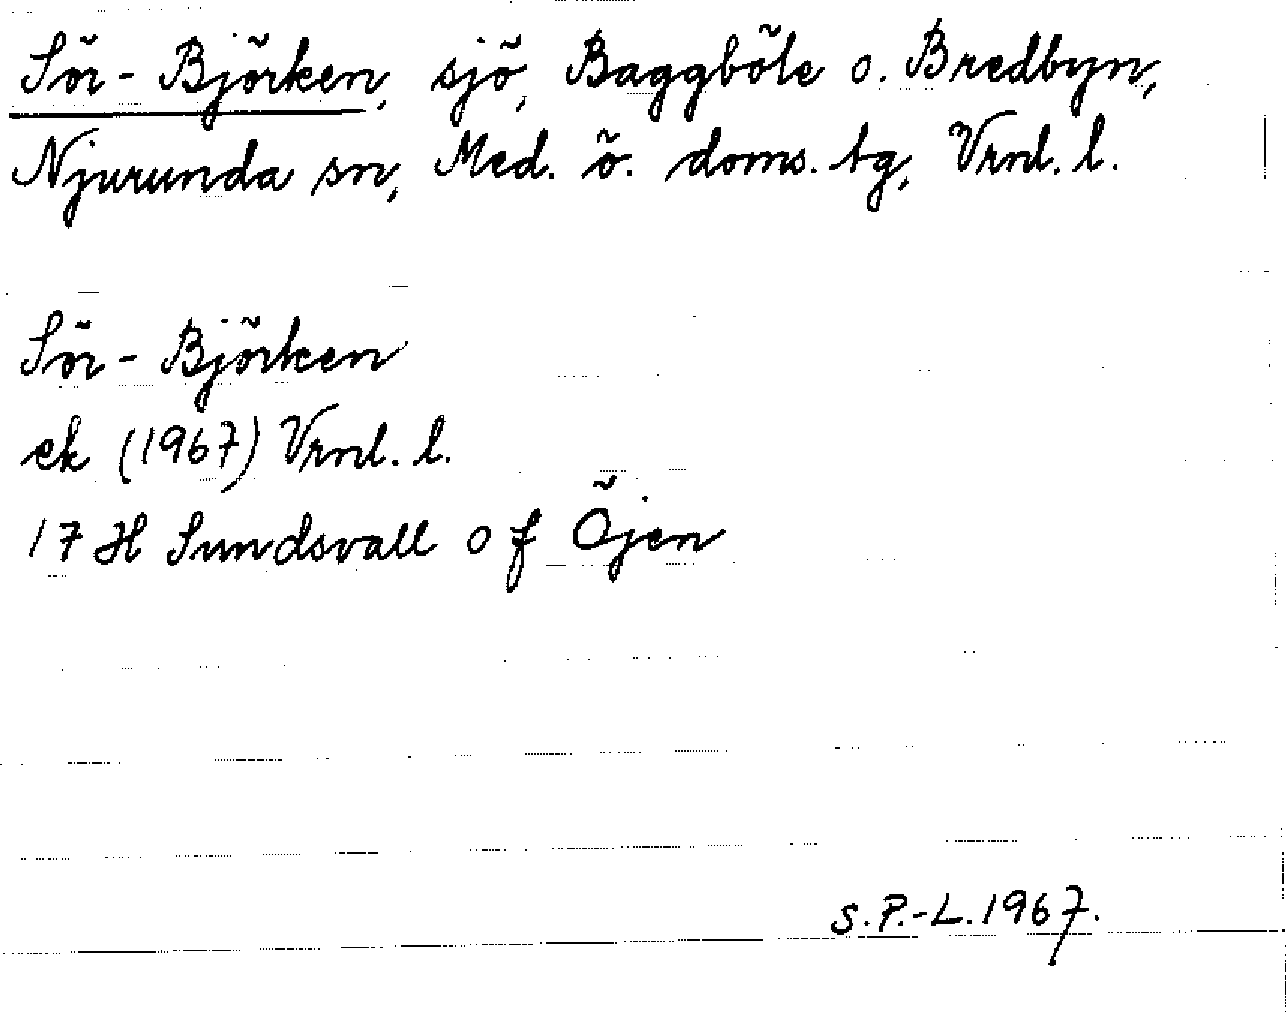 Sör-Björken, sjö, Baggböle o. Bredbyn,
Njurunda sn, Med. ö. doms. tg, Vrnl. l.
Sör-Björken
ek (1967) Vrnl. l.
17 H Sundsvall o f Öjen
S.P.-L. 1967.